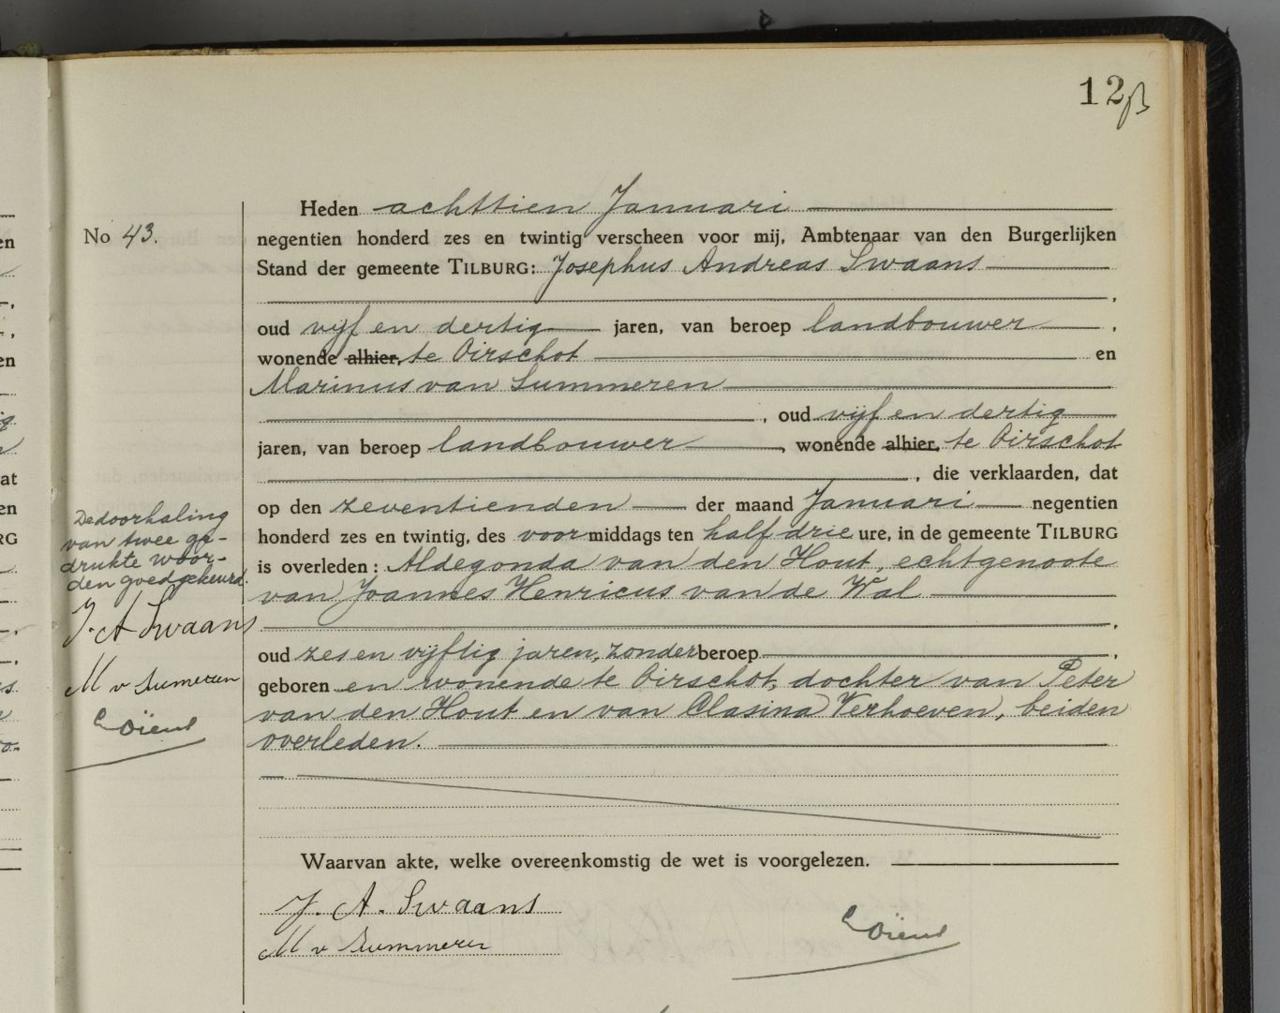 12
No 43.
Heden achttien Januari
negentien honderd zes en twintig verscheen voor mij, Ambtenaar van den Burgerlijken
Stand der gemeente TILBURG: Josephus Andreas Swaans
,
oud vijf en dertig jaren, van beroep landbouwer ,
wonende alhier, te Oirschot en
Marinus van Summeren
, oud vijf en dertig
jaren, van beroep landbouwer , wonende alhier, te Oirschot
, die verklaarden, dat
op den zeventienden der maand Januari negentien
honderd zes en twintig, des voormiddags ten half drie ure, in de gemeente TILBURG
is overleden: Aldegonda van den Hout, echtgenoote
van Joannes Henricus van de Wal
,
oud zes en vijftig jaren, zonder beroep ,
geboren en wonende te Oirschot, dochter van Peter
van den Hout en van Clasina Verhoeven, beiden
overleden.
Waarvan akte, welke overeenkomstig de wet is voorgelezen.
J. A. Swaans
M v Summeren
De doorhaling
van twee ge-
drukte woor-
den goedgekeurd.
J. A Swaans
M v Summeren